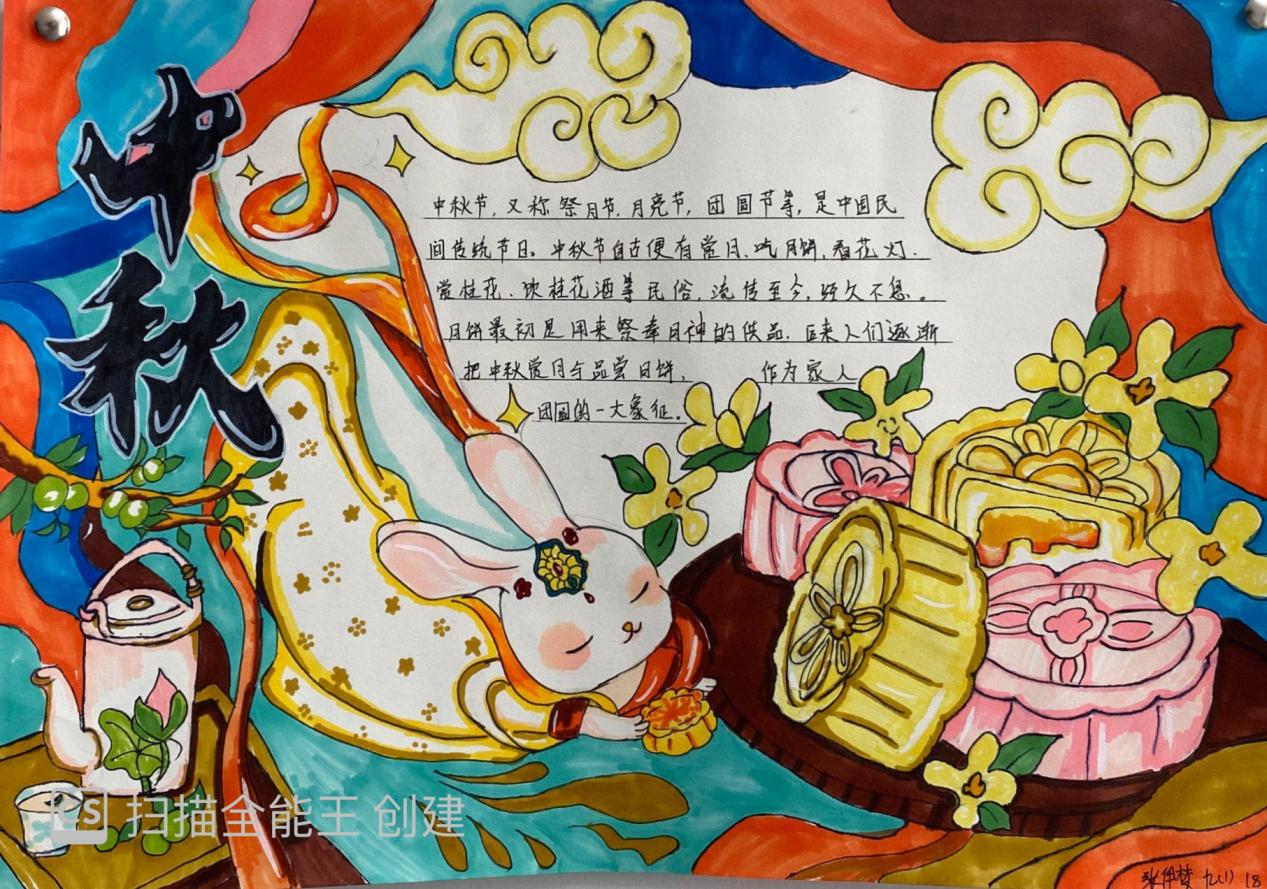 中秋
中秋节，又称祭月节，月亮节，团圆节等，是中国民
间传统节日。中秋节自古便有赏月、吃月饼、看花灯、
赏桂花、饮桂花酒等民俗，流传至今，经久不息。
月饼最初是用来祭奉月神的供品，后来人们逐渐
把中秋赏月与品尝月饼， 作为家人
团圆的一大象征。
CS 扫描全能王 创建
九(1) 18